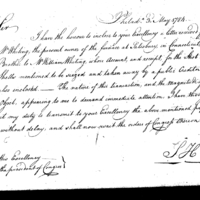 Philad.ª 3.d May 1784.
Sir
I have the honour to inclose to your Excellency a letter received
Mr Whiting, the personal owner of the furnace at Salisbury in Connecticut
Brother to Mr William Whiting, whose Account, and receipt for the Shot
Shells mentioned to be seized and taken away by a public Creditor
also enclosed — The nature of this transaction, and the Magazine
appearing to me to demand immediate attention. I have thought
my duty to transmit to your Excellency the above mentioned
without delay; and shall now await the orders of Congress thereon
S H
His Excellency
The president of Congress